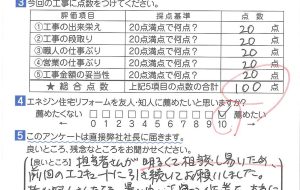 3 今回の工事に点数をつけてください。
評価項目 採点基準 点数
①工事の出来栄え 20点満点で何点? 20点
②工事の段取り 20点満点で何点? 20点
③職人の仕事ぶり 20点満点で何点? 20点
④営業の仕事ぶり 20点満点で何点? 20点
⑤工事金額の妥当性 20点満点で何点? 20点
★総合点数 上記5項目の点数の合計 100点
4 エネジン住宅リフォームを友人・知人に薦めたいと思いますか?
薦めたくない 薦めたい
0 1 2 3 4 5 6 7 8 9 10
5 このアンケートは直接弊社社長に届きます。
良いところ、残念なところをお聞かせください。
(良いところ) 担当者さんが明るくて相談し易いため、
前回のエコキュートに引き続いてお願いしました。